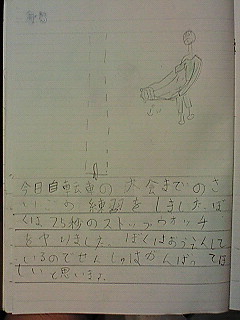 今日自転車の大会までのさ
いごの練習をしました。ぼ
くは75秒のストップウオッチ
をやりました。ぼくはおうえんして
いるのでせんしゅはがんばってほ
しいと思います。